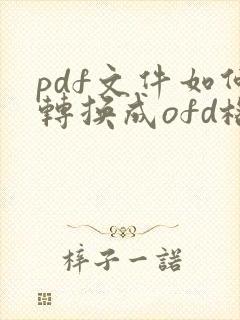 pdf文件如何
轉換成ofd格
梓子一諾